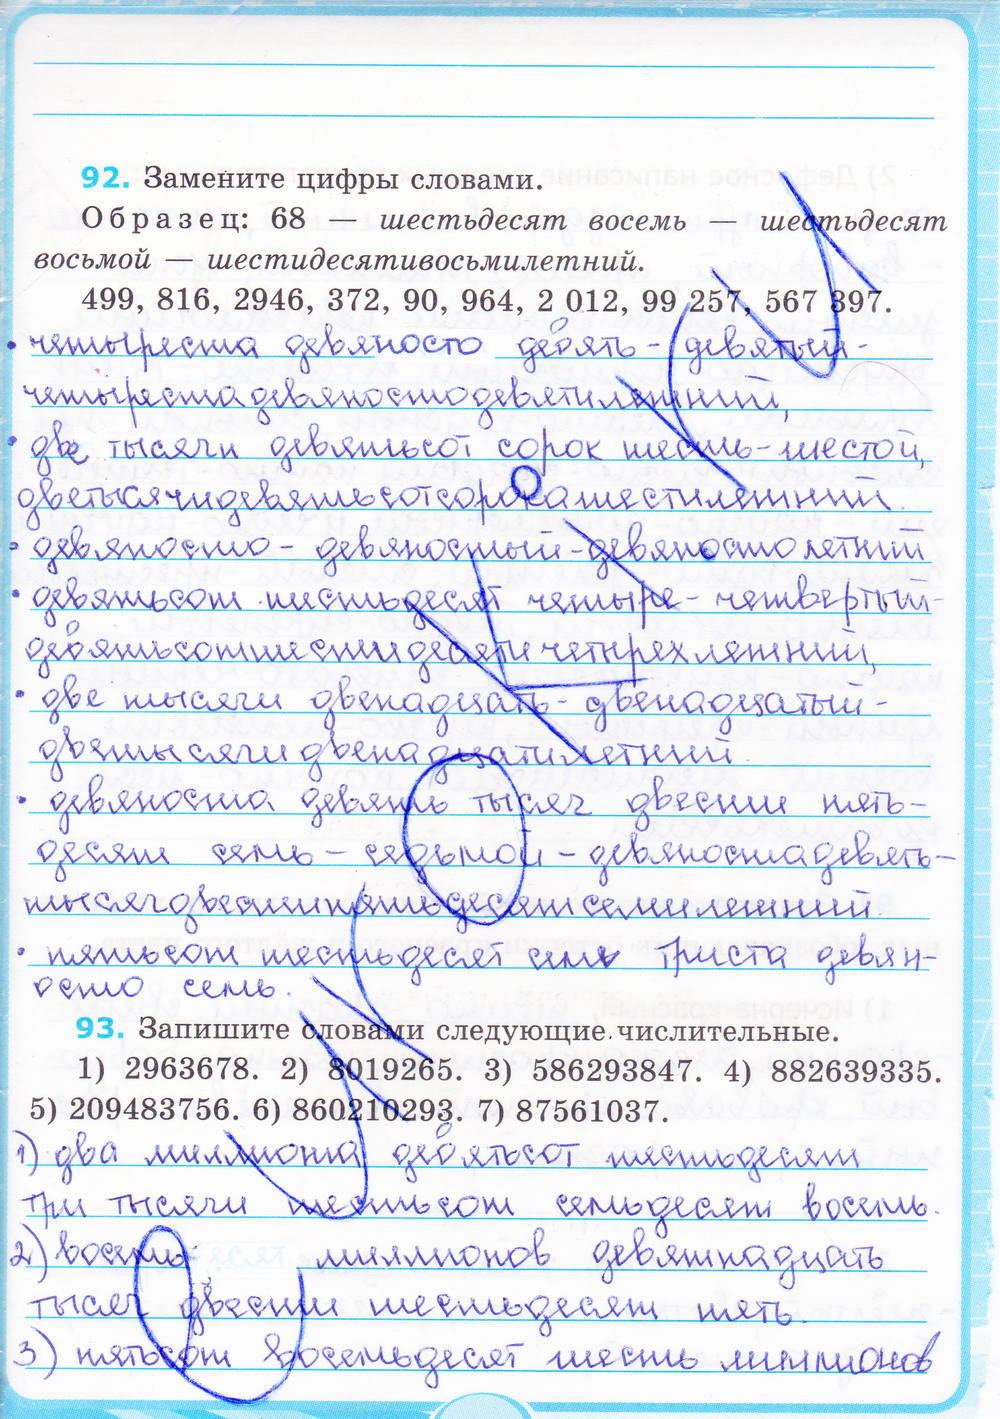 92. Замените цифры словами.
Образец: 68 — шестьдесят восемь — шестьдесят
восьмой — шестидесятивосьмилетний.
499, 816, 2946, 372, 90, 964, 2 012, 99 257, 567 397.
• четыреста девяносто девять - девятый -
четырестадевяностодевятилетний,
• две тысячи девятьсот сорок шесть - шестой,
дветысячидевятьсотсорокашестилетний.
• девяносто - девяностый - девяностолетний
• девятьсот шестьдесят четыре - четвертый -
девятьсотшестидесятичетырехлетний,
• две тысячи двенадцать - двенадцатый -
дветысячидвенадцатилетний
• девяноста девять тысяч двести пять-
десят семь - седьмой - девяностадевять-
тысячдвестипятьдесятсемилетний.
• пятьсот шестьдесят семь триста девян-
осто семь.
93. Запишите словами следующие числительные.
1) 2963678. 2) 8019265. 3) 586293847. 4) 882639335.
5) 209483756. 6) 860210293. 7) 87561037.
1) два миллиона девятьсот шестьдесят
три тысячи шестьсот семьдесят восемь.
2) восемь миллионов девятнадцать
тысяч двести шестьдесят пять.
3) пятьсот восемьдесят шесть миллионов